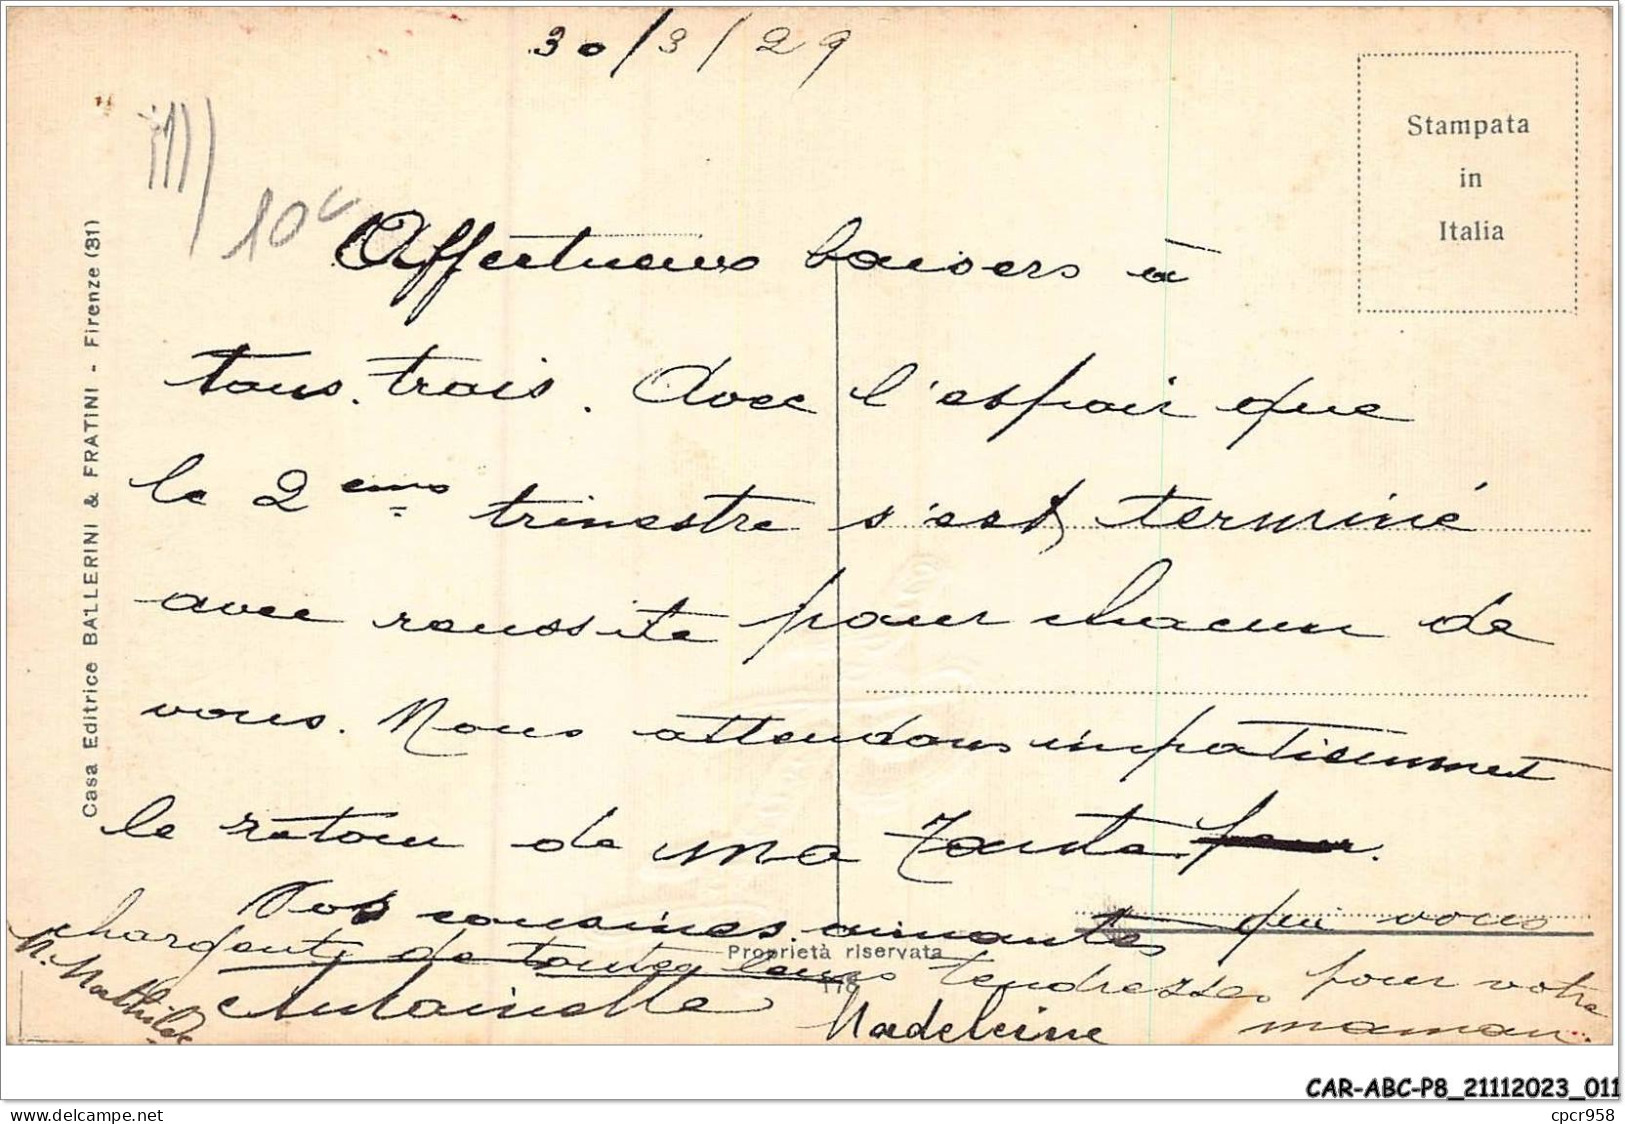 30/3/29
Stampata
in
Italia
10c
Casa Editrice BALLERINI & FRATINI - Firenze (31)
Affectueux baisers à
tous trois. Avec l'espoir que
le 2eme trimestre s'est terminé
avec reussite pour chacun de
vous. Nous attendons impatiemmet
le retour de ma Tante
Vos cousines aimantes qui vous
chargent de toutes leurs tendresses pour votre
maman.
M. Mathilde
Antoinette
Madeleine
Proprietà riservata
118
CAR-ABC-P8_21112023_011
delcampe.net
cpcr958